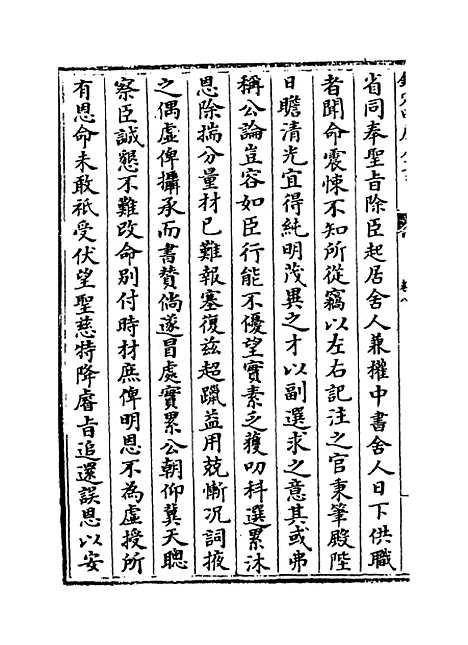 省同奉聖旨除臣起居舍人兼權中書舍人日下供職
者聞命震悚不知所從竊以左右記注之官秉筆殿陛
日瞻清光宜得純明茂異之才以副選求之意其或弗
稱公論豈容如臣行能不優望實素乏獲叨科選累沐
恩除揣分量材已難報塞復茲超躐益用兢慚况詞掖
之偶虛俾攝承而書贊倘遂冒處實累公朝仰冀天聰
察臣誠懇不難改命别付時材庶俾明恩不為虛授所
有恩命未敢祇受伏望聖慈特降睿旨追還誤恩以安